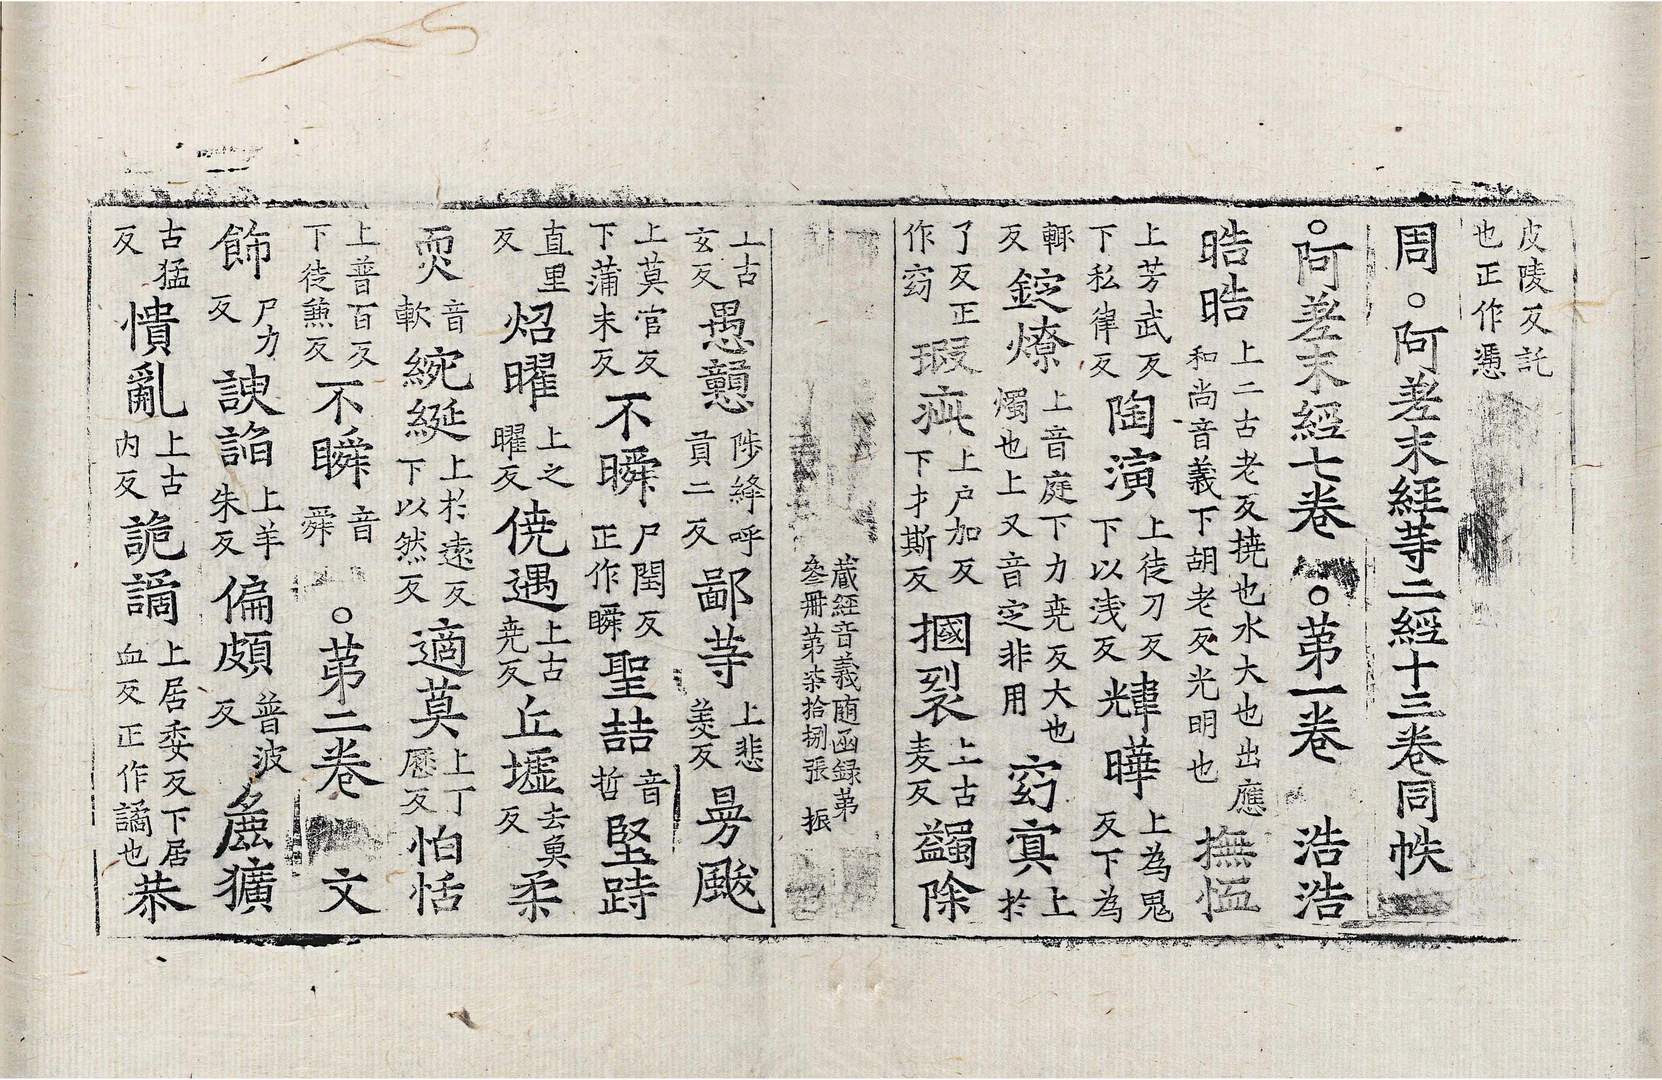 皮陵反託也正作憑
周。阿差末經䒭二經十三卷同帙
。阿差末經七卷 。苐一卷 浩浩
晧晧上二古老反撓也水大也出應和尚音義下胡老反光明也撫恤
上芳武反下私律反陶演上徒刀反下以浅反煒曄上為鬼反下為
輒反錠燎上音庭下力尭反大也燭也上又音定非用窈冥上於
了反正作窈瑕疵上户加反下才斯反摑裂上古麦反蠲除
藏經音義随函録苐叄册苐柒拾捌張 振
上古玄反愚戇陟絳呼貢二反鄙䒭上悲羙反昜颰
上莫官反下蒲末反不瞬尸閏反正作瞬聖喆音哲堅跱
直里反炤曜上之曜反僥遇上古尭反丘墟去魚反柔
耎音軟綩綖上於遠反下以然反適莫上丁歷反怕恬
上普百反下徒兼反不瞬音舜 。苐二卷 文
飾尸力反諛諂上羊朱反偏頗普波反麁獷
古猛反憒亂上古内反詭謫上居委反下居血反正作譎也恭